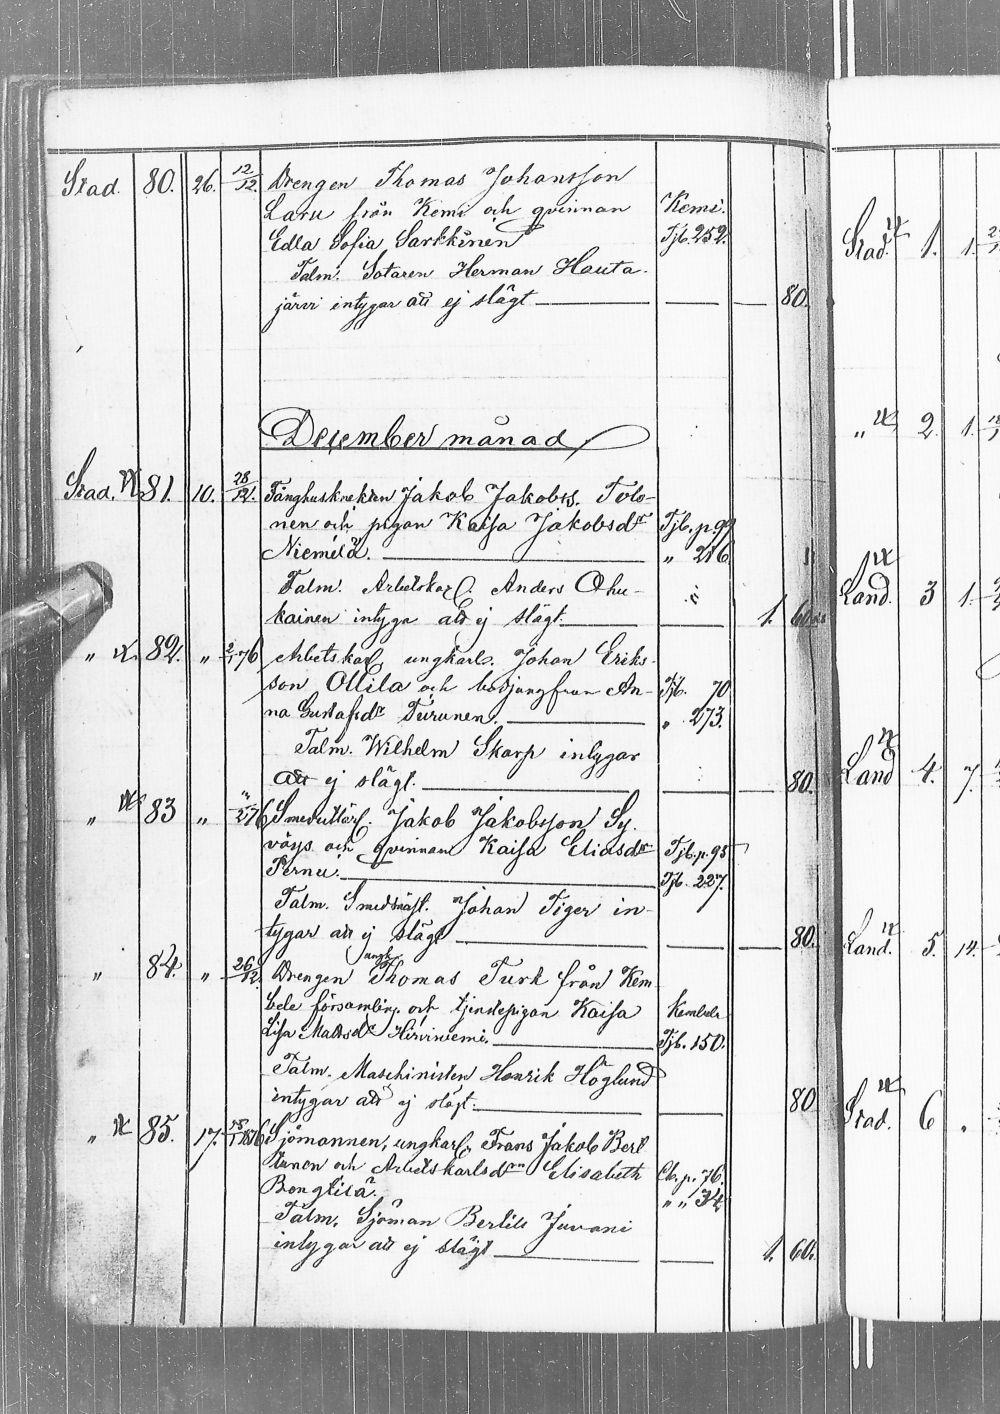 Stad. 80. 26. 12/12. Drengen Thomas Johansson
Laru från Kemi och qvinnan Kemi.
Edla Sofia Sarkkinen Tjb. 252.
Talm. Sotaren Herman Hauta-
järvi intygar att ej slägt 80.
December månad
Stad. 81. 10. 28/12. Fånghusknekten Jakob Jakobss. Tolo-
nen och pigan Kaisa Jakobsdr Tjb. p. 99
Niemelä. " 216
Talm. Arbetskarl. Anders Ohu-
kainen intyga att ej slägt. 1. 60
" 82. " 2/1 76 Arbetskarl, ungkarl. Johan Eriks-
son Ollila och bosjungfrun An- Tjb. 70
na Gustafsdr Turunen. " 273.
Talm. Wilhelm Skarp intygar
att ej slägt. 80.
" 83 " /2 76 Jakob Jakobsson Sy-
väys och qvinnan Kaisa Eliasdr Tjb. p. 95
Pernu. Tjb. 227.
Talm. Smedmäst. Johan Tiger in-
tygar att ej slägt 80.
ungk.
" 84. " 26/12. Drengen Thomas Turk från Kem-
bele församling. och tjenstepigan Kaisa Kembele
Lisa Mattsdr Hirviniemi. Tjb. 150.
Talm. Maschinisten Henrik Höglund
intygar att ej slägt. 80
" 85. 17. 1876 Sjömannen, ungkarl, Frans Jakob Bert-
tunen och Arbetskarlsdrn Elisabeth Cb. p. 76.
Bonglilä. " " 34
Talm. Sjöman Bertill Juvani
intygar att ej slägt 1. 60.
Stad. 1. 1.
" 2. 1.
Land. 3 1.
Land 4. 7.
Land. 5. 14.
Stad. 6 "